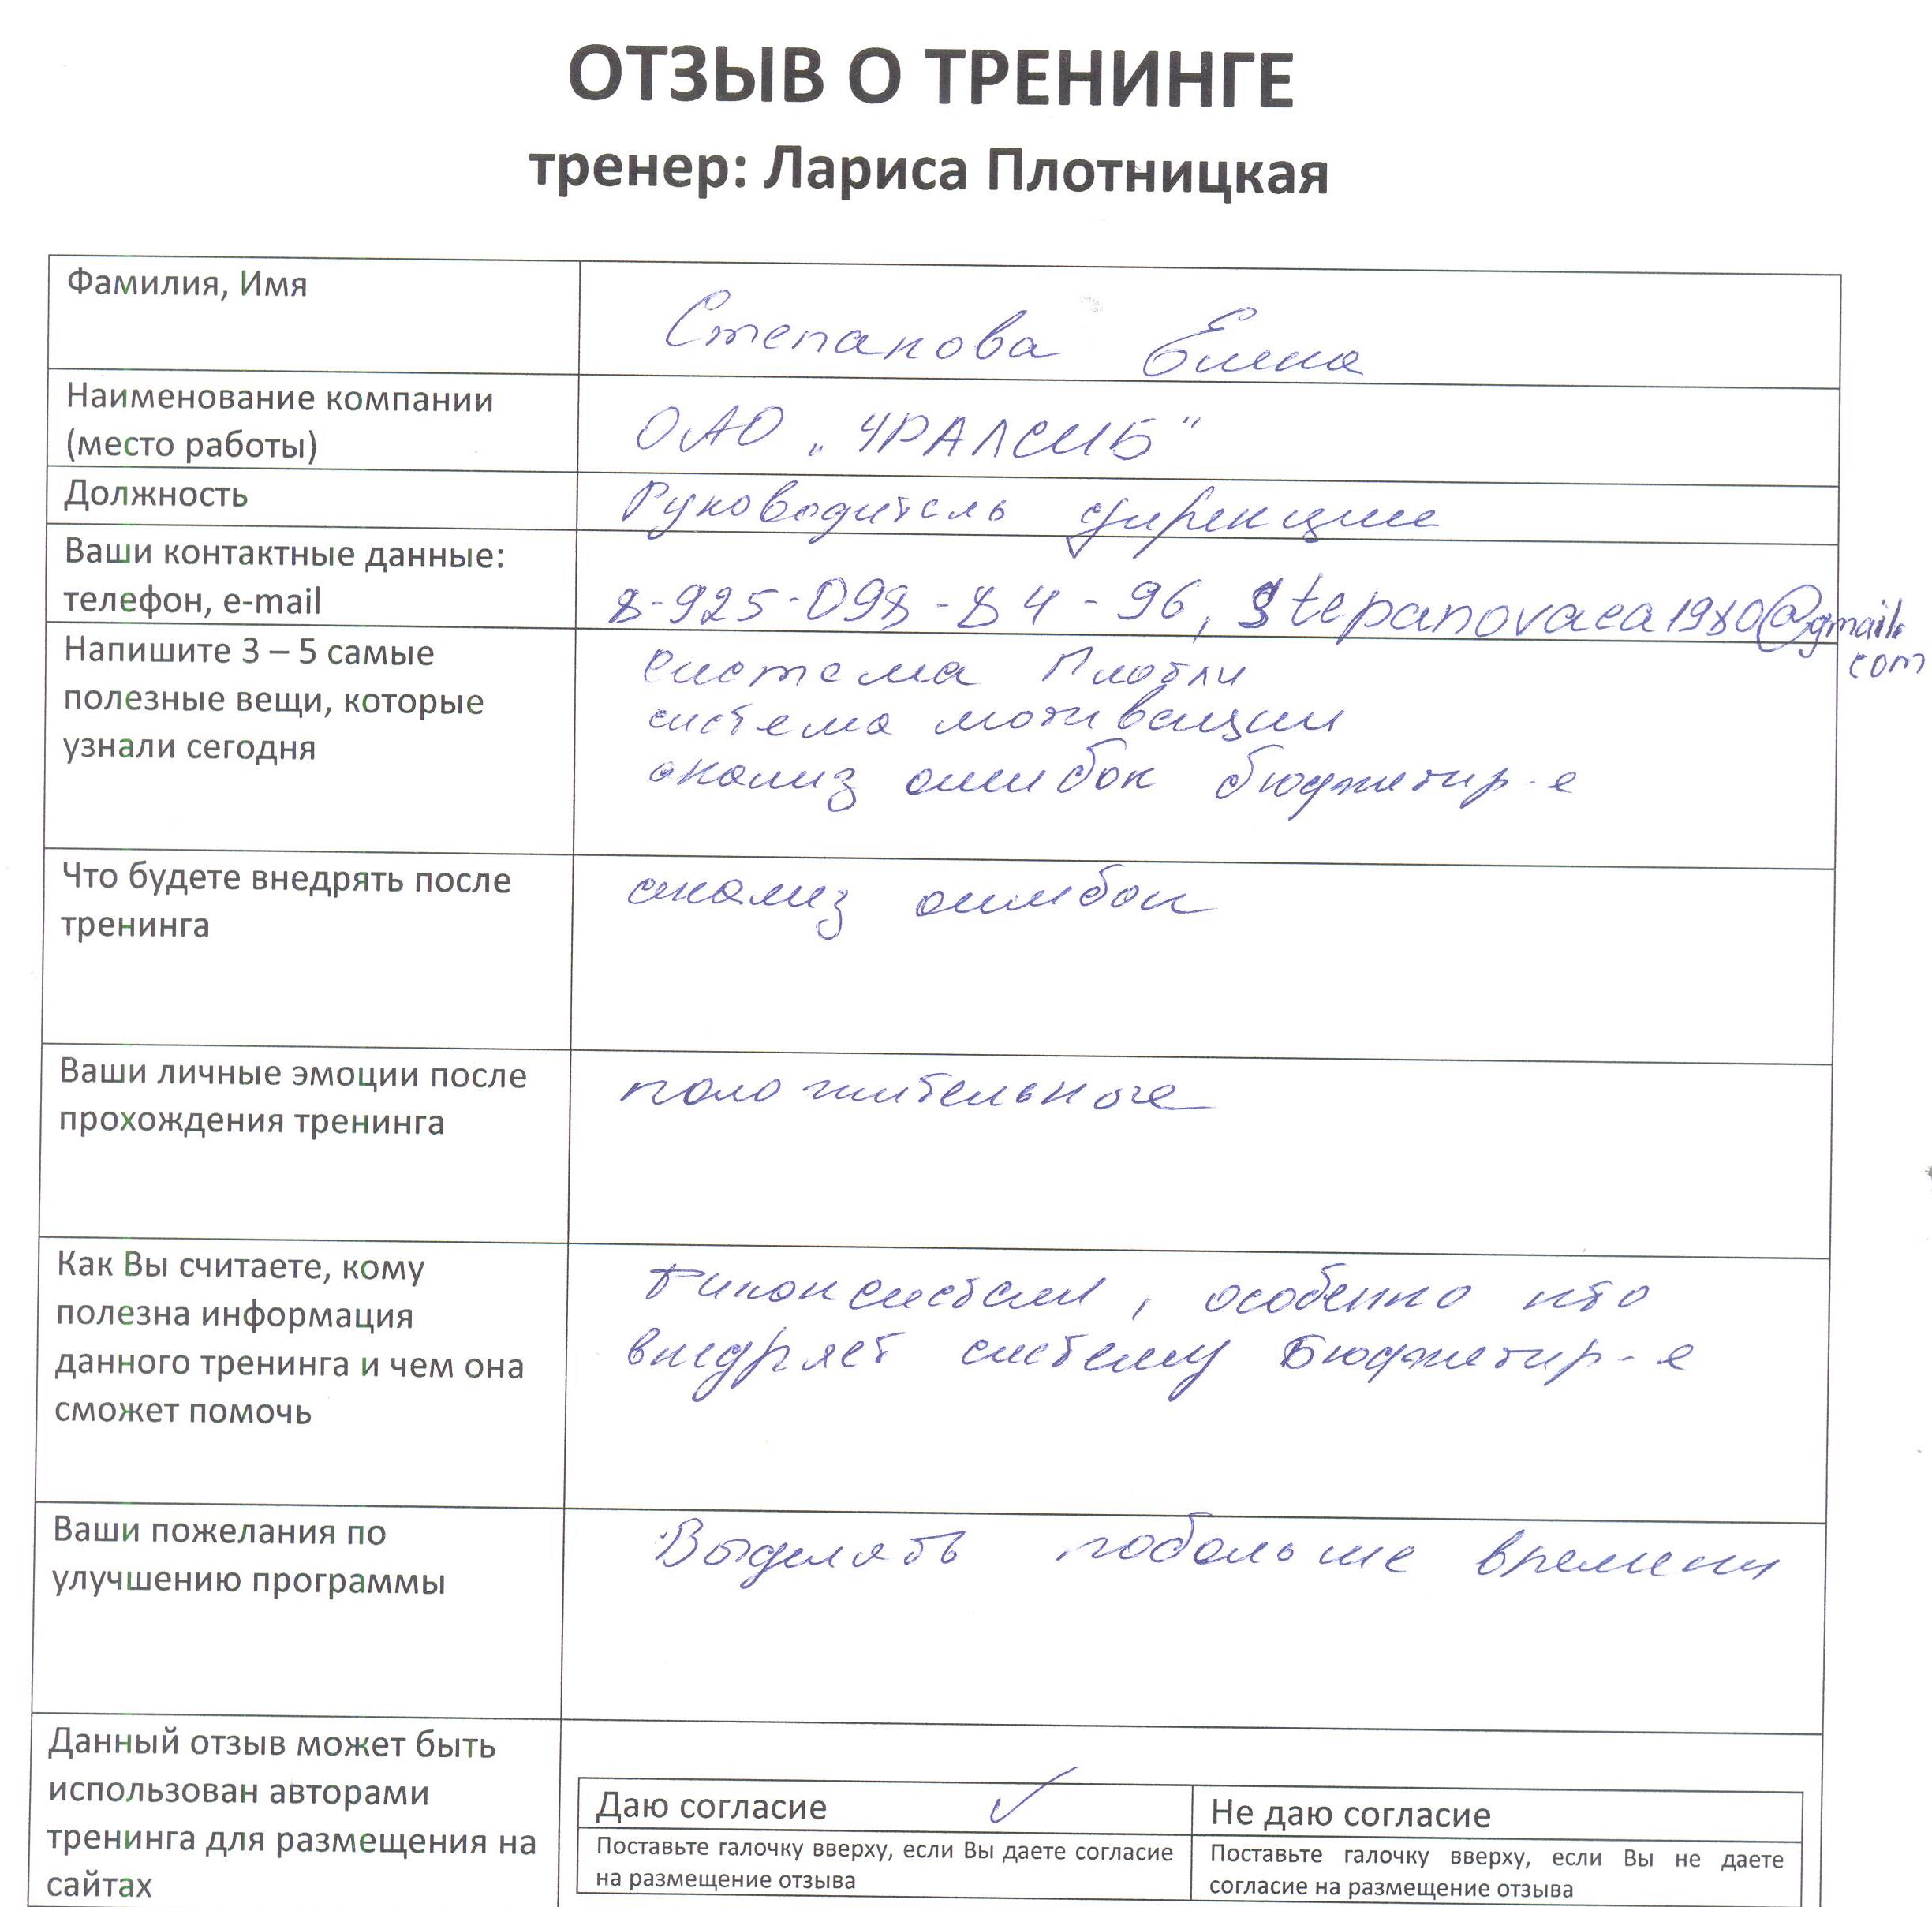 ОТЗЫВ О ТРЕНИНГЕ
тренер: Лариса Плотницкая
Фамилия, Имя
Степанова Елена
Наименование компании
(место работы)
ОАО „УРАЛСИБ"
Должность
Руководитель дирекции
Ваши контактные данные:
телефон, e-mail
8-925-098-84-96, stepanovaea1980@gmail.
com
Напишите 3 – 5 самые
полезные вещи, которые
узнали сегодня
система
система мотивации
анализ ошибок бюджетир-е
Что будете внедрять после
тренинга
анализ ошибок
Ваши личные эмоции после
прохождения тренинга
положительные
Как Вы считаете, кому
полезна информация
данного тренинга и чем она
сможет помочь
особенно кто
внедряет систему Бюджетир-е
Ваши пожелания по
улучшению программы
Выделять побольше времени
Данный отзыв может быть
использован авторами
тренинга для размещения на
сайтах
Даю согласие ✓
Не даю согласие
Поставьте галочку вверху, если Вы даете согласие
на размещение отзыва
Поставьте галочку вверху, если Вы не даете
согласие на размещение отзыва